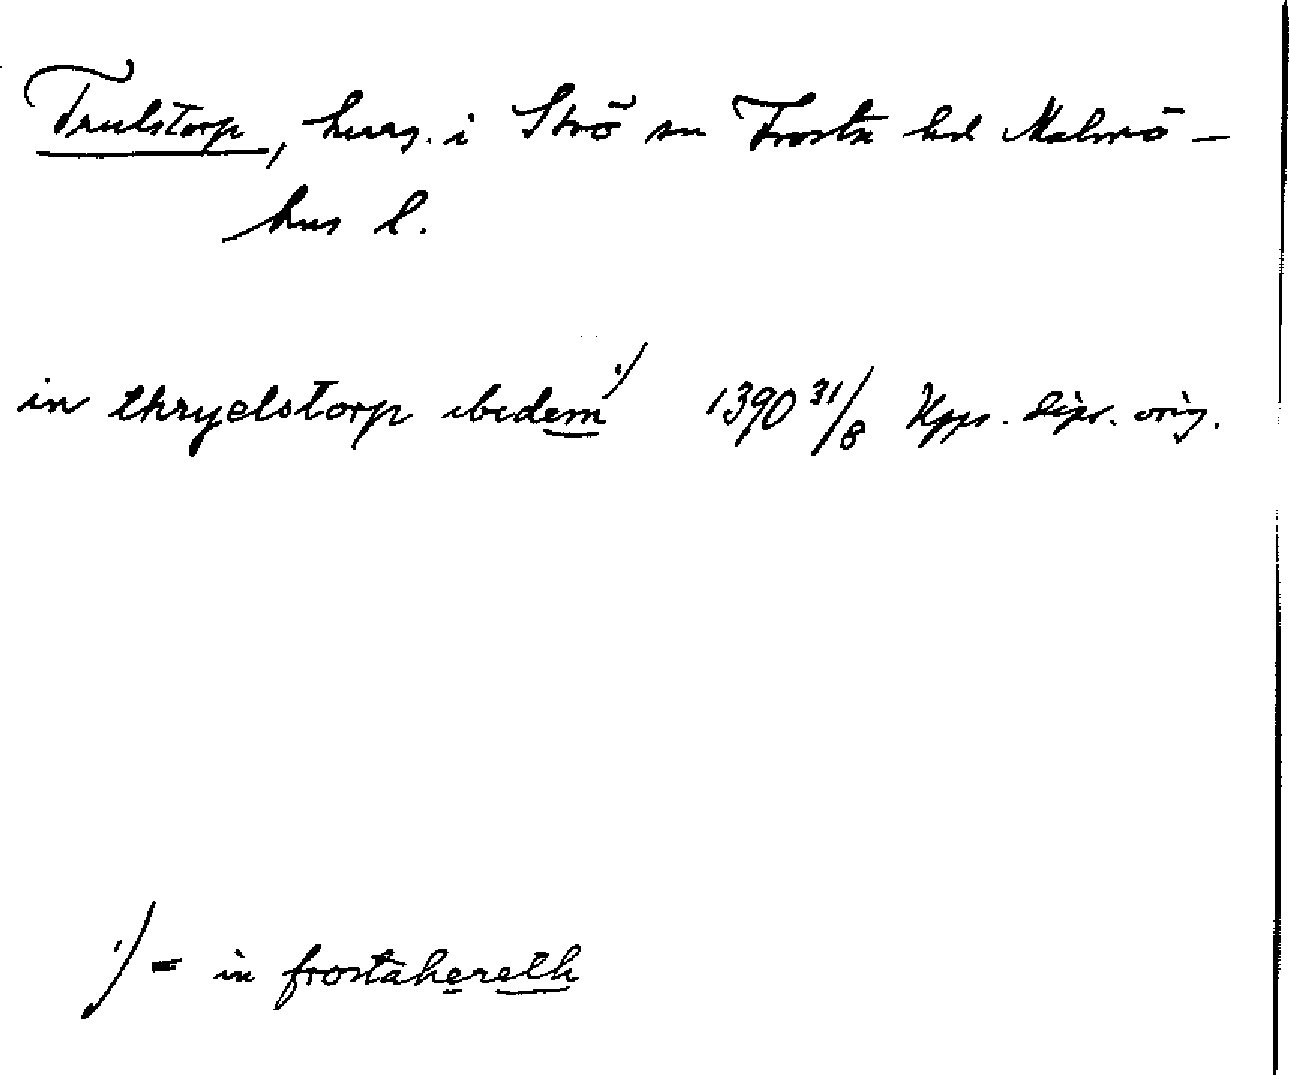 Trulstorp, herrg. i Strö sn Frosta hd Malmö-
hus l.
in thryelstorp ibidem 1) 1390 31/8 Kpps. dipl. orig.
1) = in frostahereth